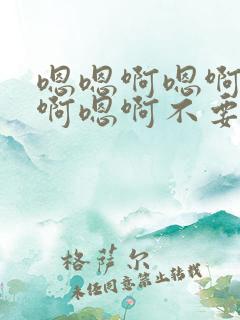 嗯嗯啊嗯啊
啊嗯啊不要
格萨尔
未经同意禁止转载